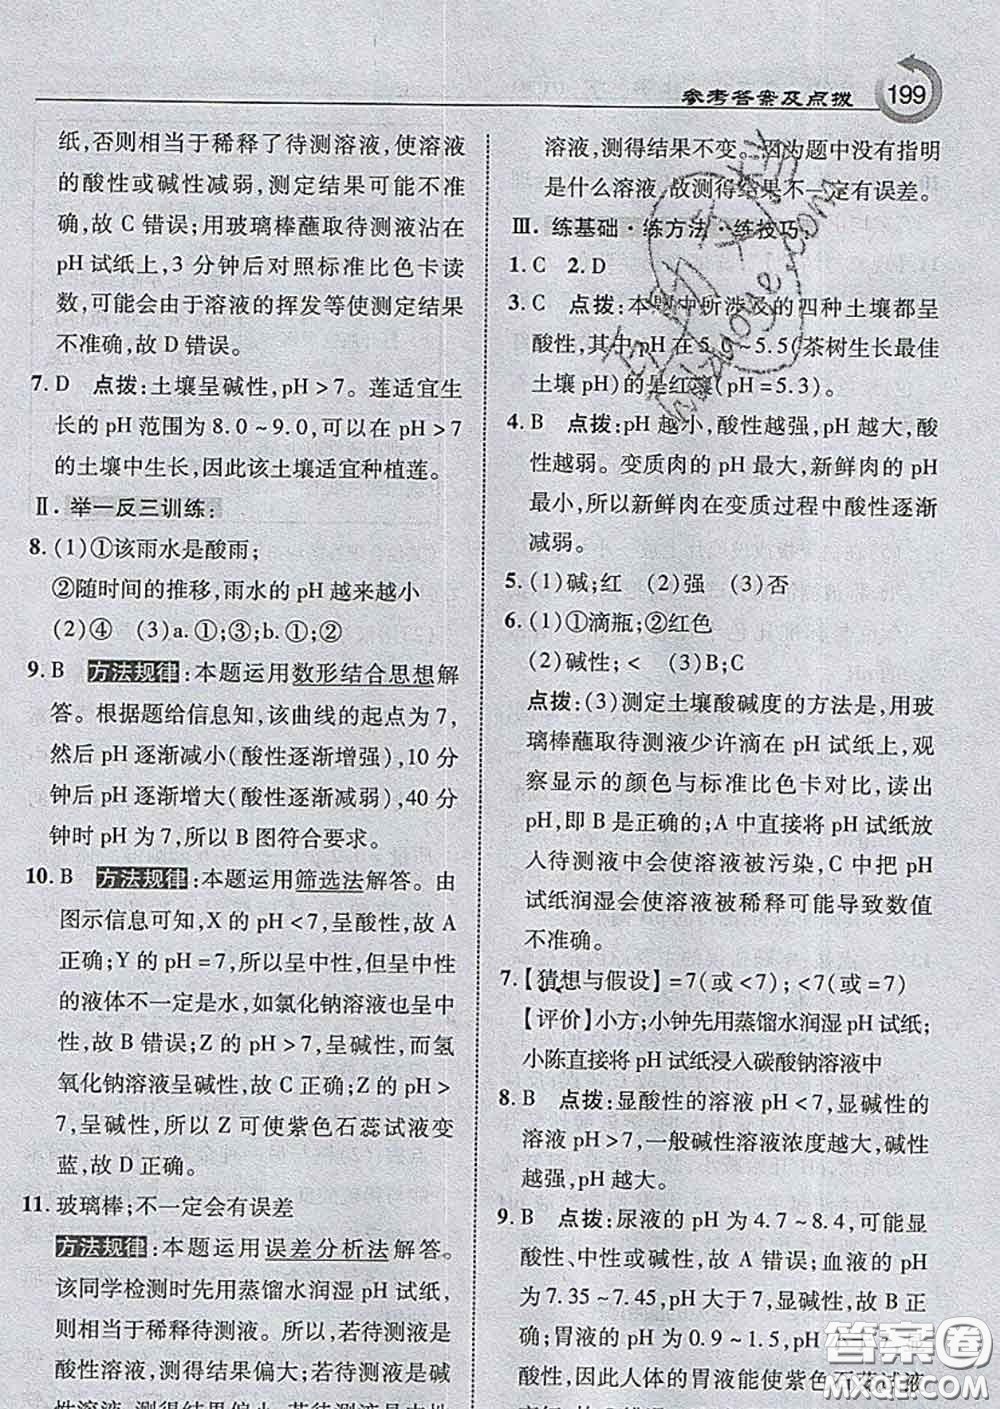 参考答案及点拨
199
纸,否则相当于稀释了待测溶液,使溶液
的酸性或碱性减弱,测定结果可能不准
确,故 C 错误;用玻璃棒蘸取待测液沾在
pH 试纸上,3 分钟后对照标准比色卡读
数,可能会由于溶液的挥发等使测定结果
不准确,故 D 错误。
7. D 点拨:土壤呈碱性,pH > 7。莲适宜生
长的 pH 范围为 8.0 ~ 9.0,可以在 pH > 7
的土壤中生长,因此该土壤适宜种植莲。
Ⅱ. 举一反三训练:
8. (1)①该雨水是酸雨;
②随时间的推移,雨水的 pH 越来越小
(2)④ (3)a. ①;③;b. ①;②
9. B 方法规律:本题运用数形结合思想解
答。根据题给信息知,该曲线的起点为 7,
然后 pH 逐渐减小(酸性逐渐增强),10 分
钟后 pH 逐渐增大(酸性逐渐减弱),40 分
钟时 pH 为 7,所以 B 图符合要求。
10. B 方法规律:本题运用筛选法解答。由
图示信息可知,X 的 pH < 7,呈酸性,故 A
正确;Y 的 pH = 7,所以呈中性,但呈中性
的液体不一定是水,如氯化钠溶液也呈中
性,故 B 错误;Z 的 pH > 7,呈碱性,而氢
氧化钠溶液呈碱性,故 C 正确;Z 的 pH >
7,呈碱性,所以 Z 可使紫色石蕊试液变
蓝,故 D 正确。
11. 玻璃棒;不一定会有误差
方法规律:本题运用误差分析法解答。
该同学检测时先用蒸馏水润湿 pH 试纸,
则相当于稀释待测液。所以,若待测液是
酸性溶液,测得结果偏大;若待测液是碱
溶液,测得结果不变。因为题中没有指明
是什么溶液,故测得结果不一定有误差。
Ⅲ. 练基础·练方法·练技巧:
1. C 2. D
3. C 点拨:本题中所涉及的四种土壤都呈
酸性,其中 pH 在 5.0 ~ 5.5(茶树生长最佳
土壤 pH)的是红壤(pH = 5.3)。
4. B 点拨:pH 越小,酸性越强,pH 越大,酸
性越弱。变质肉的 pH 最大,新鲜肉的 pH
最小,所以新鲜肉在变质过程中酸性逐渐
减弱。
5. (1)碱;红 (2)强 (3)否
6. (1)①滴瓶;②红色
(2)碱性;< (3)B;C
点拨:(3)测定土壤酸碱度的方法是,用玻
璃棒蘸取待测液少许滴在 pH 试纸上,观
察显示的颜色与标准比色卡对比,读出
pH,即 B 是正确的;A 中直接将 pH 试纸放
入待测液中会使溶液被污染,C 中把 pH
试纸润湿会使溶液被稀释可能导致数值
不准确。
7. 【猜想与假设】= 7(或 < 7);< 7(或 = 7)
【评价】小方;小钟先用蒸馏水润湿 pH 试纸;
小陈直接将 pH 试纸浸入碳酸钠溶液中
8. B 点拨:显酸性的溶液 pH < 7,显碱性的
溶液 pH > 7,一般碱性溶液浓度越大,碱性
越强,pH 越大。
9. B 点拨:尿液的 pH 为 4.7 ~ 8.4,可能显
酸性、中性或碱性,故 A 错误;血液的 pH
为 7.35 ~ 7.45,pH 大于 7,显碱性,故 B 正
确;胃液的 pH 为 0.9 ~ 1.5,pH 小于
酸性,因此人体的胃液能使紫色石蕊试液
答案圈
MXQE.COM